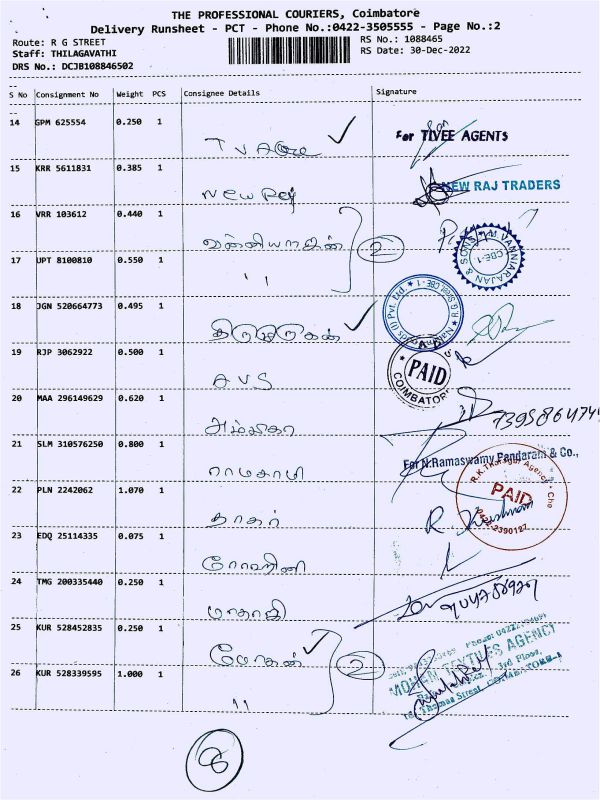 THE PROFESSIONAL COURIERS, Coimbatore
Delivery Runsheet - PCT - Phone No.:0422-3505555 - Page No.:2
Route: R G STREET
RS No.: 1088465
Staff: THILAGAVATHI
RS Date: 30-Dec-2022
DRS No.: DCJB108846502
S No Consignment No Weight PCS Consignee Details Signature
14 GPM 625554 0.250 1
For TIVEE AGENTS
15 KRR 5611831 0.385 1
New Raj
NEW RAJ TRADERS
16 VRR 103612 0.440 1
வன்னியராஜன் 2
M. VANNIARAJAN & SONS CBE-1
17 UPT 8100810 0.550 1
"
18 JGN 520664773 0.495 1
திருமுருகன்
19 RJP 3062922 0.500 1
AVS
PAID
COIMBATORE
20 MAA 296149629 0.620 1
அம்பிகா
21 SLM 310576250 0.800 1
ராமசாமி
For N.Ramaswamy Pandaram & Co.,
22 PLN 2242062 1.070 1
தாகர்
PAID
0422-2390127
23 EDQ 25114335 0.075 1
ரோஹினி
24 TMG 200335440 0.250 1
மாதாஜி
25 KUR 528452835 0.250 1
மோகன் 2
MOHEN TEXTILES AGENCY
3rd Floor,
Thomas Street, COIMBATORE-1
26 KUR 528339595 1.000 1
"
8